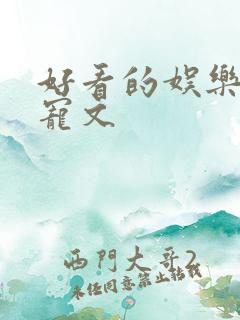 好看的娱樂
寵文
西門大哥2
未经同意禁止转载